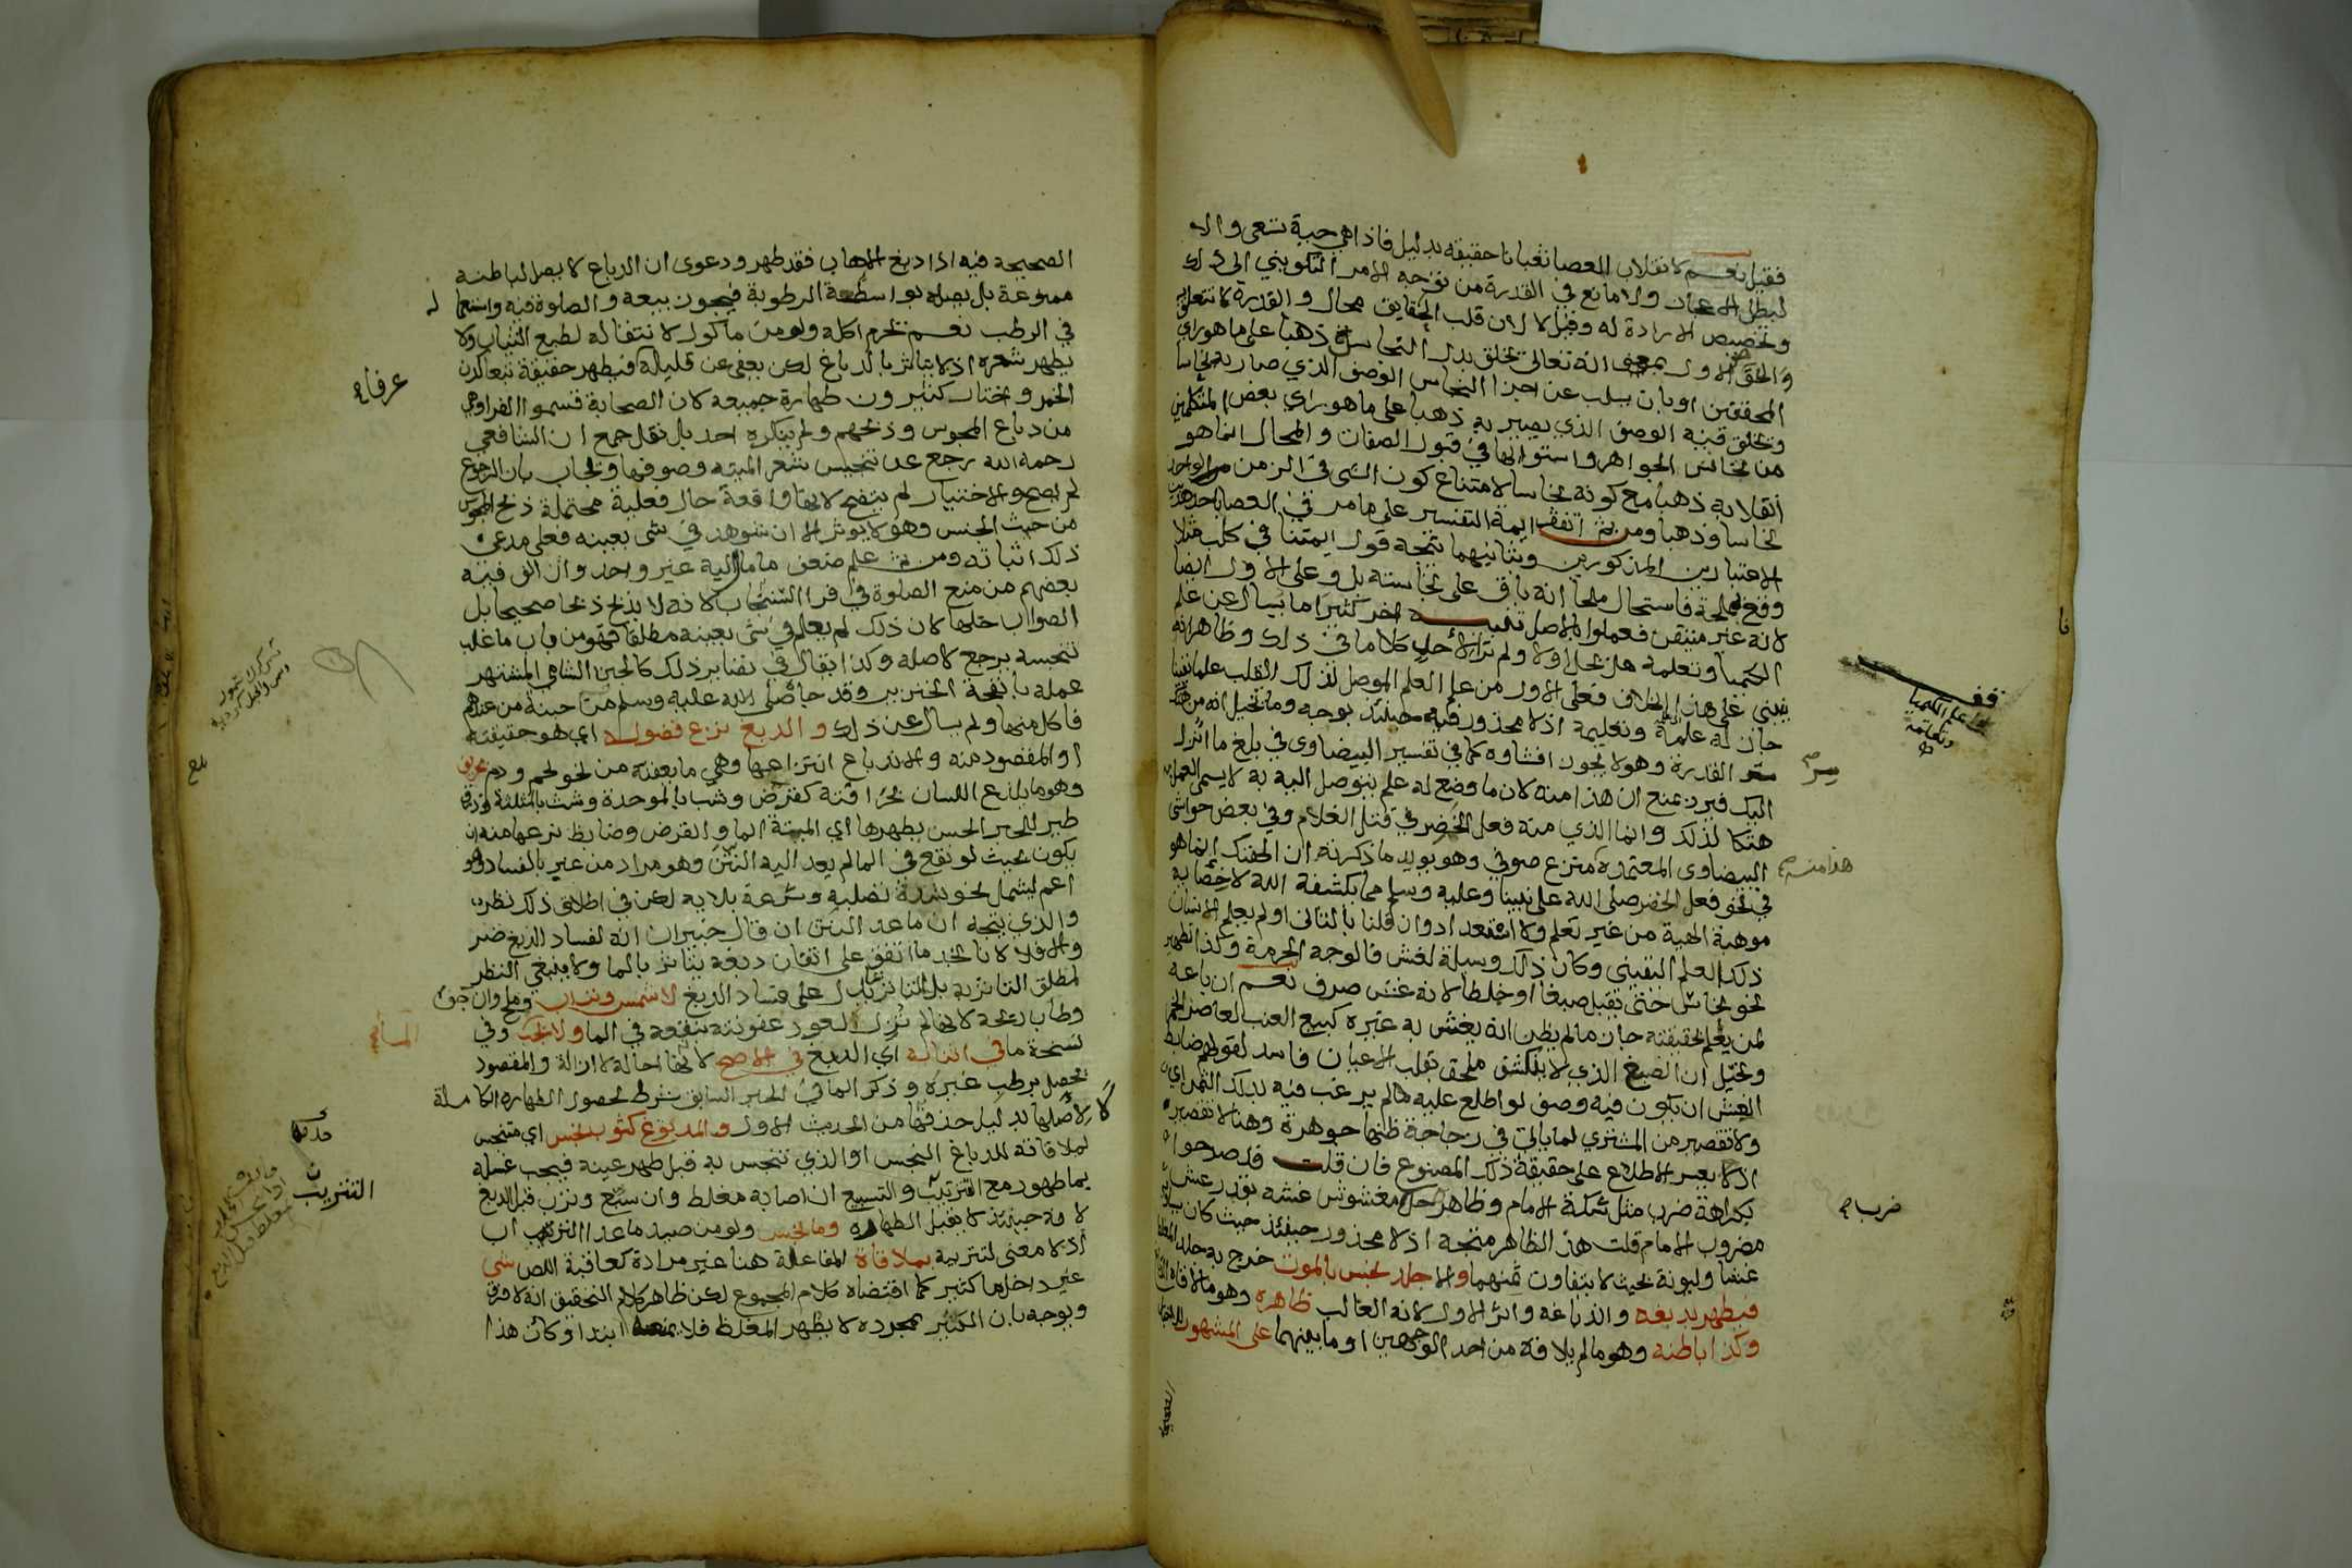 فقيل نعم لانقلاب العصا ثعبانا حقيقة بدليل فاذا هي حية تسعى والا
لبطل الاعجاز ولا مانع في القدرة من توجه الامر التكويني الى ذلك
وتخصيص الارادة له وقيل لا لان قلب الحقايق محال والقدرة لا تتعلق به
والحق الاول بمعنى انه تعالى يخلق بدل النحاس ذهبا على ما هو راي
المحققين او بان يسلب عن اجزا النحاس الوصف الذي صار به نحاسا
ويخلق فيه الوصف الذي يصير به ذهبا على ما هو راي بعض المتكلمين
من تجانس الجواهر واستوائها في قبول الصفات والمحال انما هو
انقلابه ذهبا مع كونه نحاسا لامتناع كون الشي في الزمن الواحد
نحاسا وذهبا ومن ثم اتفق ايمة التفسير على ما مر في العصا باحد هذين
الاعتبارين المذكورين وبثانيهما يتجه قول ايمتنا في كلب مثلا
وقع في مملحة فاستحال ملحا انه باق على نجاسته بل وعلى الاول ايضا
لانه غير متيقن فعملوا بالاصل تنبيه اخر كثيرا ما يسال عن علم
الكيميا وتعلمه هل يحل اولا ولم نر لاحد كلاما في ذلك وظاهر انه
يبنى على هذا الخلاف فعلى الاول من علم العلم الموصل لذلك القلب علما يقينا
جاز له علمه وتعليمه اذ لا محذور فيه حينئذ بوجه وما تخيل انه من هتك
سر القدرة وهو لا يجوز افشاوه كما في تفسير البيضاوى في بلغ ما انزل
اليك فيرد بمنع ان هذا منه لان ما وضع له علم يتوصل اليه به لا يسمى العمل به
هتكا لذلك وانما الذي منه فعل الخضر في قتل الغلام وفي بعض حواشي
البيضاوى المعتمدة منزع صوفي وهو يويد ما ذكرته ان الهتك انما هو
في نحو فعل الخضر صلى الله على نبينا وعليه وسلم مما يكشفه الله لاخصائه
موهبة الهية من غير تعلم ولا استعداد وان قلنا بالثاني او لم يعلم الانسان
ذلك العلم اليقيني وكان ذلك وسيلة لغش فالوجه الحرمة وكذا تطهير
نحو نحاس حتى يقبل صبغا او خلطا لانه غش صرف نعم ان باعه
لمن يعلم لحقيقته جاز ما لم يظن انه يغش به غيره كبيع العنب لعاصر الخمر
وتخيل ان الصبغ الذي لا ينكشف ملحق بقلب الاعيان فاسد لقولهم ضابط
الغش ان يكون فيه وصف لو اطلع عليه ما لم يرغب فيه بذلك الثمن اي
ولا تقصير من المشتري لما ياتي في زجاجة ظنها جوهرة وهنا لا تقصير
اذ لا يعسر الاطلاع على حقيقة ذلك المصنوع فان قلت قد صرحوا
بكراهة ضرب مثل سكة الامام وظاهر حل مغشوش غشه بقدر غش
مضروب الامام قلت هذا الظاهر متجه اذ لا محذور حينئذ حيث كان
غشا وليونة بحيث لا يتفاوت ثمنهما والا جلد نجس بالموت خرج به جلد المغلظ
فيطهر بدبغه واندباغه واثر الاول لانه الغالب ظاهره وهو ما لاقاه
وكذا باطنه وهو ما لم يلاقه من احد الوجهين او ما بينهما على المشهور
قف
على علم الكيميا
وتعلمه
سر صح
هذا منه صح
ضرب صح
الصحيحة فيه اذا دبغ الاهاب فقد طهر ودعوى ان الدباغ لا يصل لباطنه
ممنوعة بل يصله بواسطة الرطوبة فيجوز بيعه والصلوة فيه واستعماله
في الرطب نعم يحرم اكله ولو من ماكول لانتقاله لطبع الثياب ولا
يطهر شعره اذ لا يتاثر بالدباغ لكن يعفى عن قليله فيطهر حقيقة تبعا لدن
الخمر واختار كثيرون طهارة جميعه لان الصحابة قسموا الفرا وهي
من دباغ المجوس وذبحهم ولم ينكره احد بل نقل جمع ان الشافعي
رحمه الله رجع عن تنجيس شعر الميتة وصوفها ويجاب بان الرجوع
لم يصح والاختيار لم يتضح لانها واقعة حال فعلية محتملة ذبح المجوس
من حيث الجنس وهو لا يوثر الا ان شوهد في شي بعينه فعلى مدعي
ذلك اثباته ومن ثم علم ضعف ما مال اليه غير واحد وان الف فيه
بعضهم من منع الصلوة في فرا السنجاب لانه لا يذبح ذبحا صحيحا بل
الصواب حلها لان ذلك لم يعلم في شي بعينه مطلقا فهو من باب ما غلب
تنجسه يرجع لاصله وكذا يقال في نظاير ذلك كالجبن الشامي المشتهر
عمله بانفحة الخنزير وقد جاءه صلى الله عليه وسلم جبنة من عندهم
فاكل منها ولم يسال عن ذلك والدبغ نزع فضوله اي هو حقيقته
او المقصود منه والاندباغ انتزاعها وهي ما يعفنه من نحو لحم ودم بحريف
وهو ما يلذع اللسان بحرافته كقرض وشب بالموحدة وشث بالمثلثة وذرق
طير للخبر الحسن يطهرها اي الميتة الما والقرض وضابط نزعها منه ان
يكون بحيث لو نقع في الما لم يعد اليه النتن وهو مراد من عبر بالفساد او هو
اعم ليشمل نحو شدة تصلبه وسرعة بلايه لكن في اطلاق ذلك نظر
والذي يتجه ان ما عدا النتن ان قال خبيران انه لفساد الدبغ ضر
والا فلا لانا نجد ما اتفق على اتقان دبغه يتاثر بالما ولا ينبغي النظر
لمطلق التاثر به بل لتاثر يدل على فساد الدبغ لا شمس وتراب وملح وان جف
وطاب ريحه لانها لم تزل لعود عفونته بنقعه في الما ولا يجب وفي
نسخة ما في اثنائه اي الدبغ في الاصح لانها احالة لا ازالة والمقصود
يحصل برطب غيره وذكر الما في الخبر السابق شرط لحصول الطهارة الكاملة
لا لاصلها بدليل حذفها من الحديث الاول والمدبوغ كثوب نجس اي متنجس
لملاقاته للدباغ النجس او الذي تنجس به قبل طهر عينه فيجب غسله
بما طهور مع التتريب والتسبيع ان اصابه مغلظ وان سبع وترب قبل الدبغ
لانه حينئذ لا يقبل الطهارة وما نجس ولو من صيد ما عدا التراب
اذ لا معنى لتتريبه بملاقاة المفاعلة هنا غير مرادة كعاقبة اللص شي
غير داخل ما كثير كما اقتضاه كلام المجموع لكن ظاهر كلام التحقيق انه لا فرق
ويوجه بان الكثير بمجرده لا يطهر المغلظ فلا يمنعه ابتدا وكان هذا
عرفا صح
المسا صح
التتريب